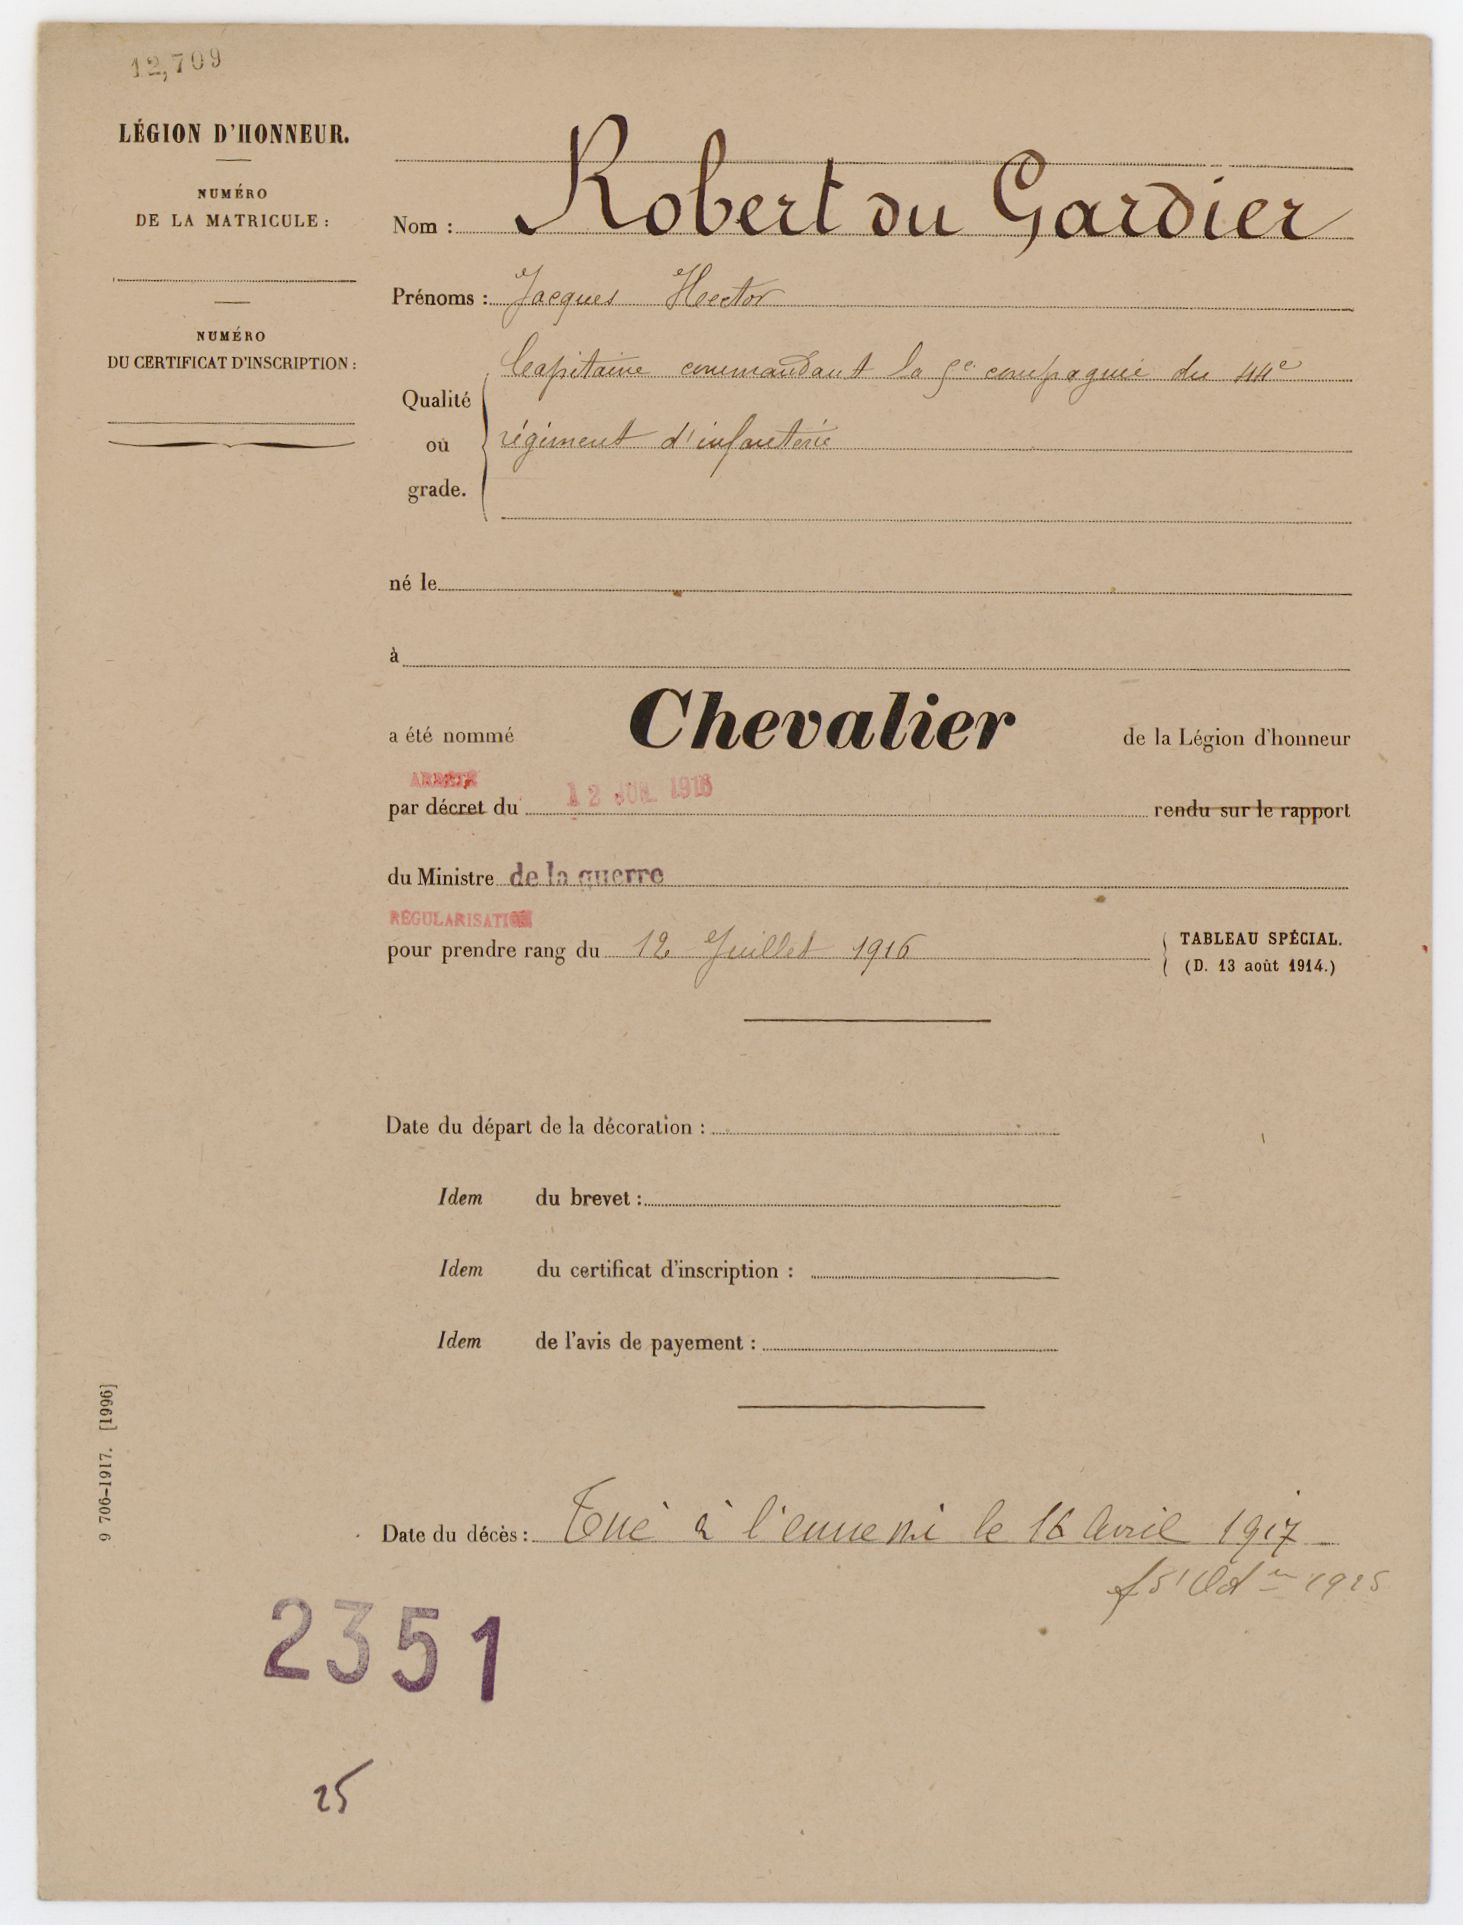 12,709
LÉGION D'HONNEUR.
NUMÉRO
DE LA MATRICULE :
NUMÉRO
DU CERTIFICAT D'INSCRIPTION :
Nom : Robert du Gardier
Prénoms : Jacques Hector
Qualité
où
grade.
Capitaine commandant la compagnie du 44e
régiment d'infanterie
né le
à
a été nommé Chevalier de la Légion d'honneur
ARRÊTÉ
par décret du 12 JUIL. 1916 rendu sur le rapport
du Ministre de la guerre
RÉGULARISATION
pour prendre rang du 12 Juillet 1916
TABLEAU SPÉCIAL.
(D. 13 août 1914.)
Date du départ de la décoration :
Idem du brevet :
Idem du certificat d'inscription :
Idem de l'avis de payement :
9 706-1917. [1996]
Date du décès : Tué à l'ennemi le 16 Avril 1917
2351
25